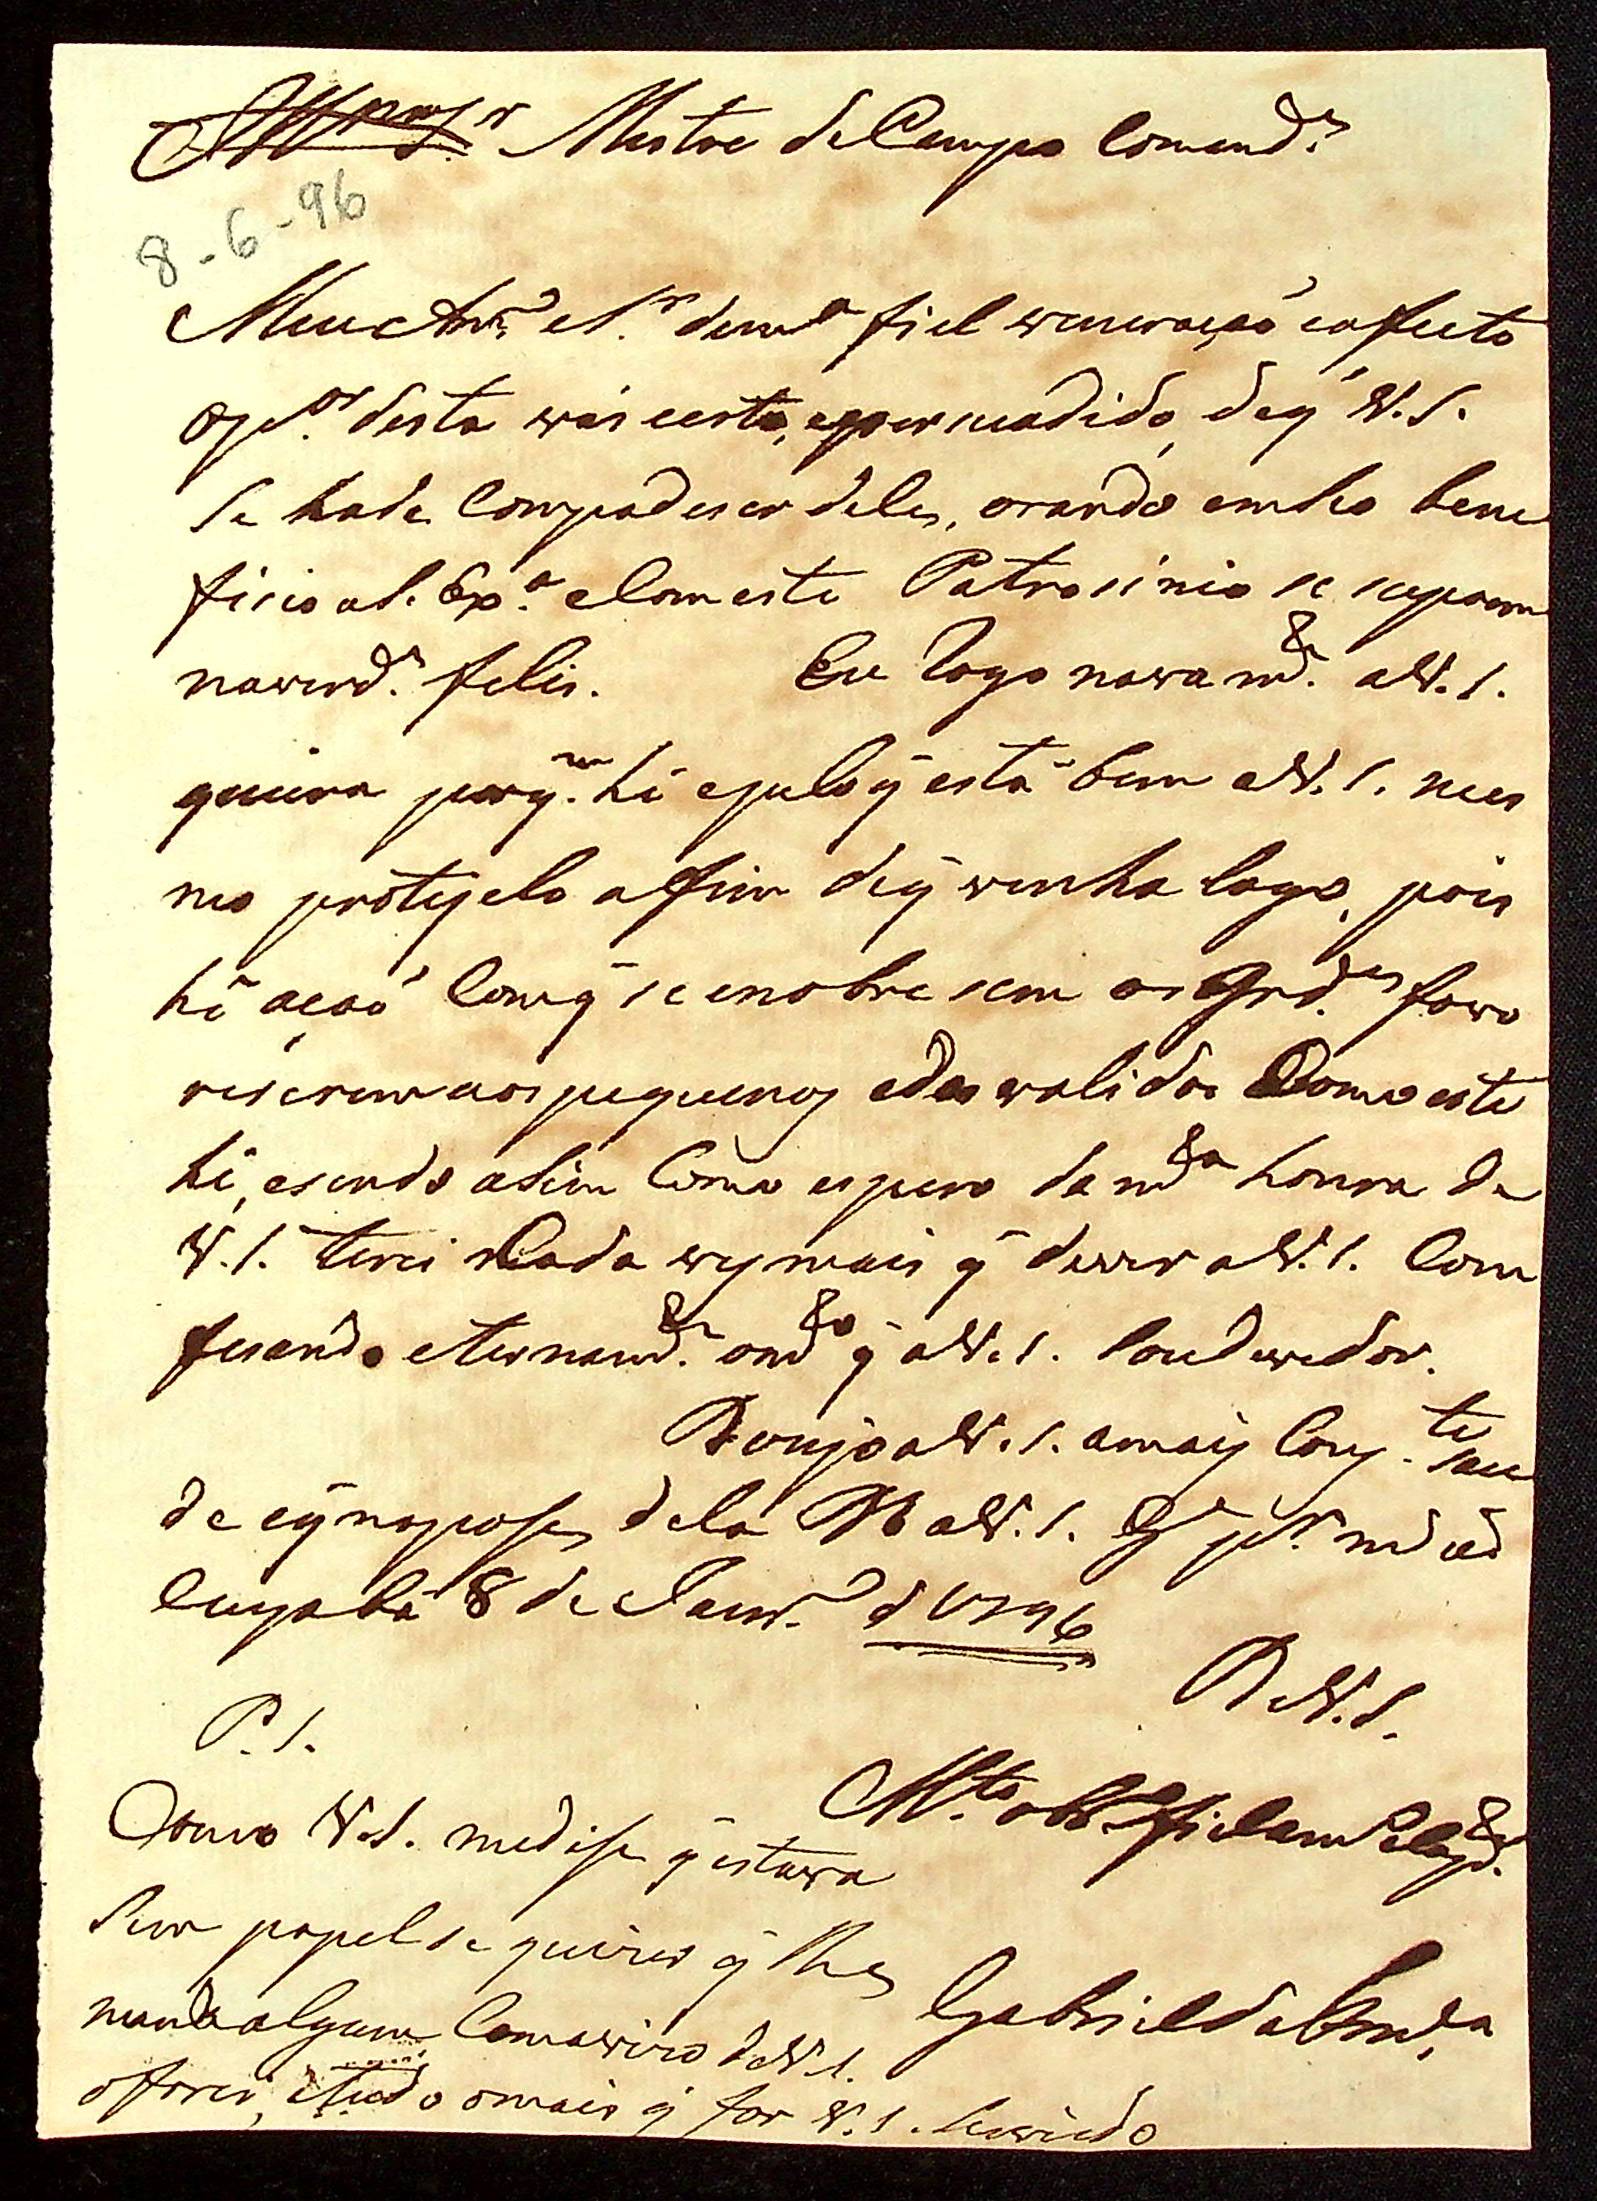 Illmo Sr Mestre de Campo Comande
8-6-96
Meu Amo e Sr dema fiel veneração eafecto
desta vai certo, epersuadido, deq' V.S.
se hade Compadeser deles, orando emho bene
ficio aS. Exa eComeste Patrosinio se supoem
naverde felis. Eu Rogo novamte aV.S.
queira porqm hé epeloq' está bem aV.S. mes
mo protejelo afim deq' venha logo, pois
hé ação Comq' se enobresem os Grdes favo
reserem aos piquenos edesvalidos Como este
hé, esendo asim Como espero da mta honra de
V.S. terei Cada ves mais q' dever aV.S. Com
fesando eternamte omto q' aV.S. Soudevedor.
Dezejo aV.S. amais Comp.te sau
de eq'noposse dela M aV.S. Ge por ms as
Cuyabá 8 de Janro d 1796
DeV.S.
P.S.
Mto obro fiel am eObrigdo
Como V.S. medise q'estava
Sem papel se quizer q' lhe
mande algum Comavizo deV.S.
Gabriel da Fonca
oforei, etudo omais q' for V.S. Servido